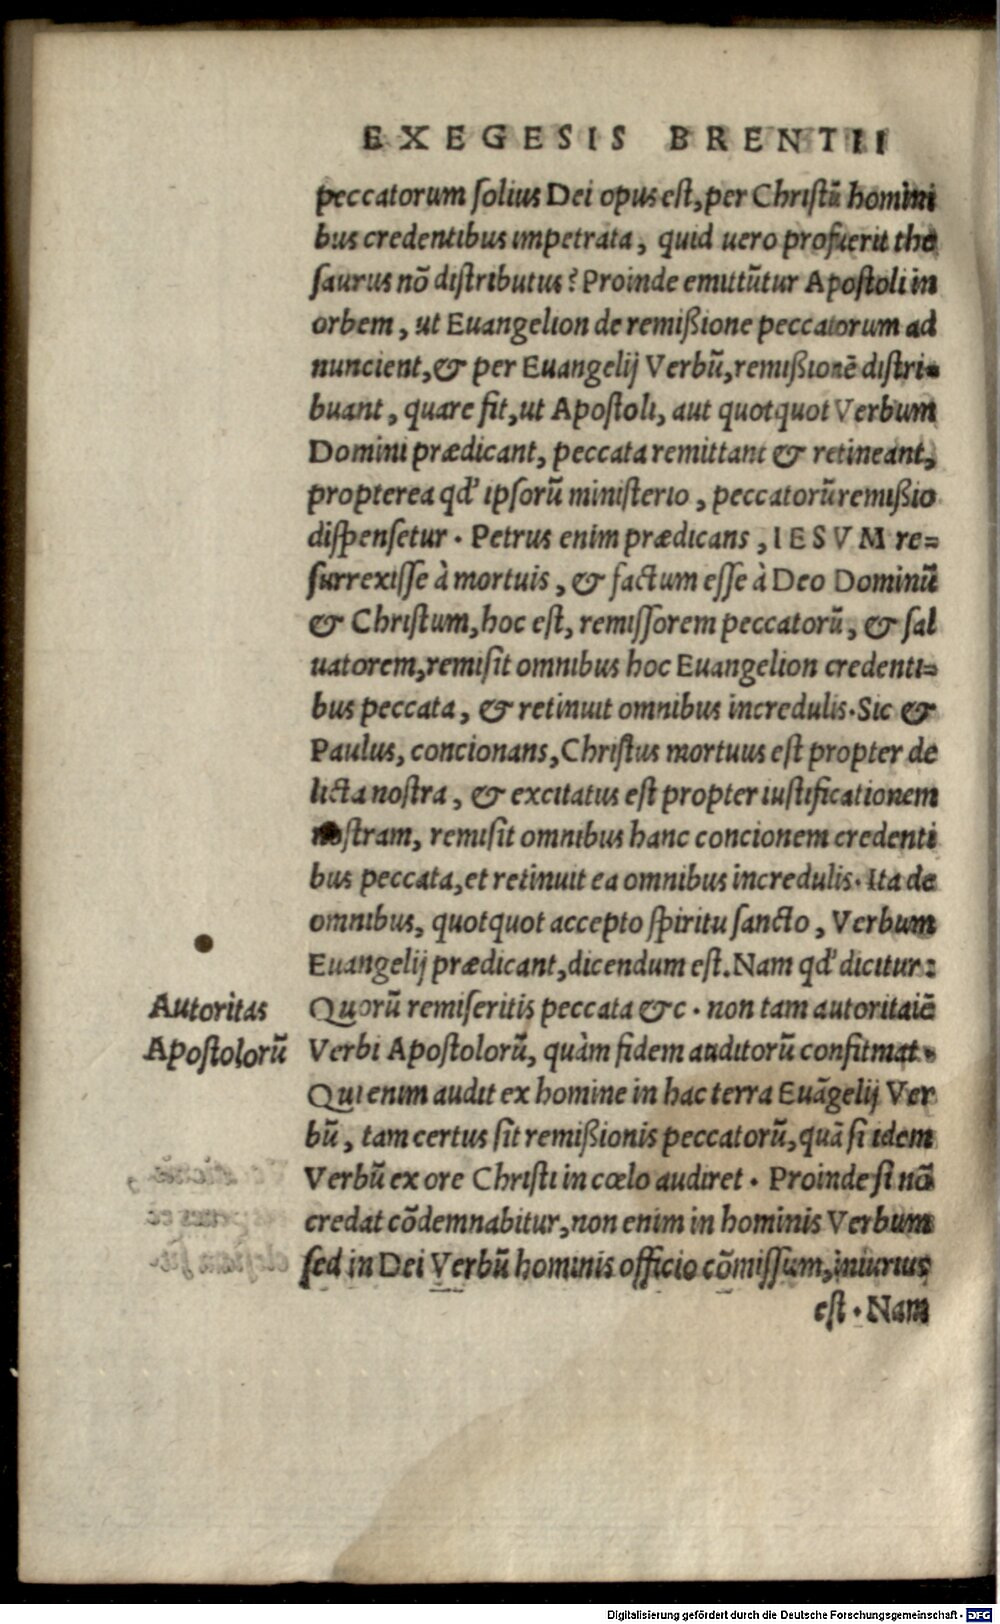 EXEGESIS BRENTII
peccatorum solius Dei opus est, per Christū homini
bus credentibus impetrata, quid uero profuerit the
saurus nō distributus? Proinde emittūtur Apostoli in
orbem, ut Euangelion de remißione peccatorum ad
nuncient, & per Euangelij Verbū, remißionē distri-
buant, quare fit, ut Apostoli, aut quotquot Verbum
Domini prædicant, peccata remittant & retineant,
propterea qd' ipsorū ministerio, peccatorū remißio
dispensetur. Petrus enim prædicans, IESVM re-
surrexisse à mortuis, & factum esse à Deo Dominū
& Christum, hoc est, remissorem peccatorū, & sal
uatorem, remisit omnibus hoc Euangelion credenti-
bus peccata, & retinuit omnibus incredulis. Sic &
Paulus, concionans, Christus mortuus est propter de
licta nostra, & excitatus est propter iustificationem
nostram, remisit omnibus hanc concionem credenti
bus peccata, et retinuit ea omnibus incredulis. Ita de
omnibus, quotquot accepto spiritu sancto, Verbum
Euangelij prædicant, dicendum est. Nam qd' dicitur:
Quorū remiseritis peccata &c. non tam autoritatē
Autoritas
Apostolorū
Verbi Apostolorū, quàm fidem auditorū confirmat.
Qui enim audit ex homine in hac terra Euāgelij Ver
bū, tam certus sit remißionis peccatorū, quā si idem
Verbū ex ore Christi in cœlo audiret. Proinde si nō
credat cōdemnabitur, non enim in hominis Verbum
sed in Dei Verbū hominis officio cōmissum, iniurius
est. Nam
Digitalisierung gefördert durch die Deutsche Forschungsgemeinschaft - DFG